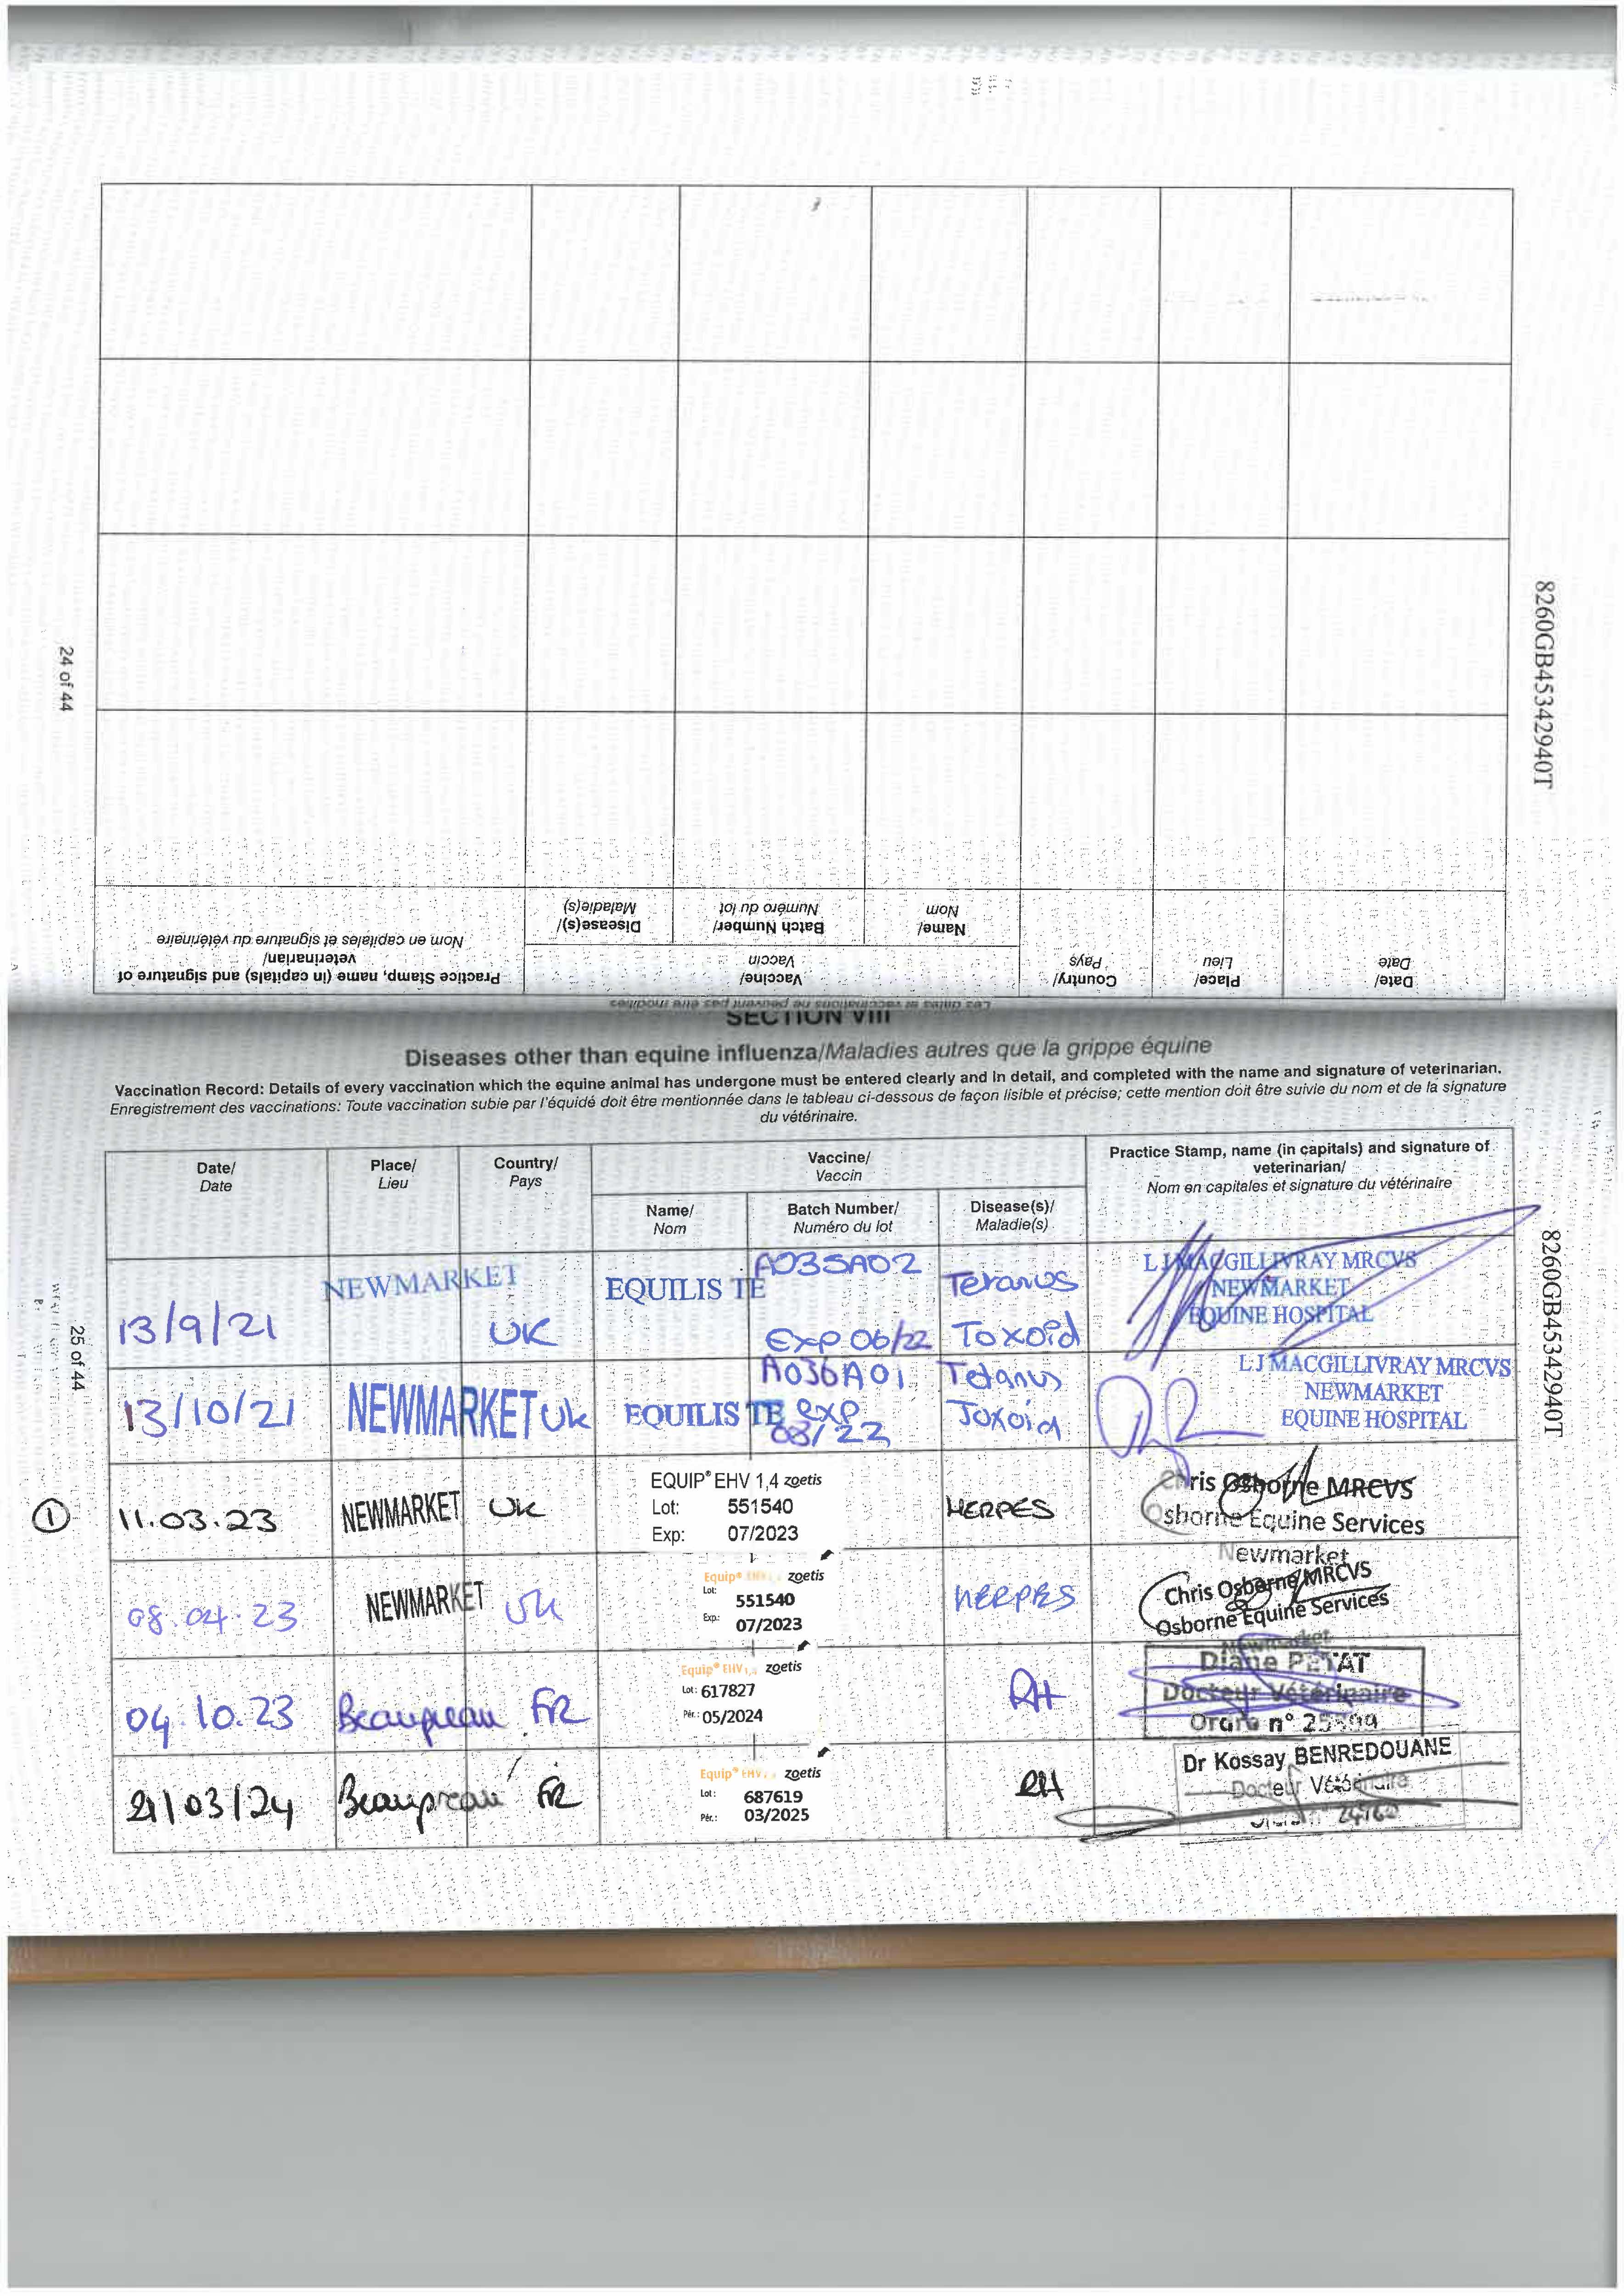 8260GB45342940T
24 of 44
Date/
Date
Place/
Lieu
Country/
Pays
Vaccine/
Vaccin
Name/
Nom
Batch Number/
Numéro du lot
Disease(s)/
Maladie(s)
Practice Stamp, name (in capitals) and signature of
veterinarian/
Nom en capitales et signature du vétérinaire
SECTION VIII
Diseases other than equine influenza/Maladies autres que la grippe équine
Vaccination Record: Details of every vaccination which the equine animal has undergone must be entered clearly and in detail, and completed with the name and signature of veterinarian.
Enregistrement des vaccinations: Toute vaccination subie par l'équidé doit être mentionnée dans le tableau ci-dessous de façon lisible et précise; cette mention doit être suivie du nom et de la signature
du vétérinaire.
Date/
Date
Place/
Lieu
Country/
Pays
Vaccine/
Vaccin
Name/
Nom
Batch Number/
Numéro du lot
Disease(s)/
Maladie(s)
Practice Stamp, name (in capitals) and signature of
veterinarian/
Nom en capitales et signature du vétérinaire
13/9/21
NEWMARKET
UK
EQUILIS TE
A035A02
Exp 06/22
Tetanus
Toxoid
L J MACGILLIVRAY MRCVS
NEWMARKET
EQUINE HOSPITAL
13/10/21
NEWMARKET
UK
EQUILIS TE
A036A01
exp
08/22
Tetanus
Toxoid
L J MACGILLIVRAY MRCVS
NEWMARKET
EQUINE HOSPITAL
1
11.03.23
NEWMARKET
UK
EQUIP® EHV 1,4 zoetis
Lot: 551540
Exp: 07/2023
HERPES
Chris Osborne MRCVS
Osborne Equine Services
Newmarket
08.04.23
NEWMARKET
UK
Equip® EHV 1,4 zoetis
Lot: 551540
Exp.: 07/2023
HERPES
Chris Osborne MRCVS
Osborne Equine Services
Newmarket
04.10.23
Beaupreau
FR
Equip® EHV 1,4 zoetis
Lot: 617827
Pér.: 05/2024
RH
Diane PETAT
Docteur Vétérinaire
Ordre n°
21/03/24
Beaupreau
FR
Equip® EHV 1,4 zoetis
Lot: 687619
Pér.: 03/2025
RH
Dr Kossay BENREDOUANE
Docteur Vétérinaire
25 of 44
8260GB45342940T